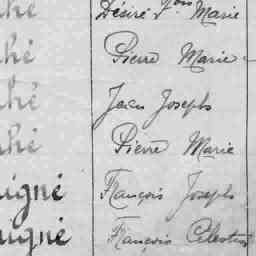 hé Désiré Fois Marie
hé Pierre Marie
hé Jean Joseph
hé Pierre Marie
igné François Joseph
igné François Célestin